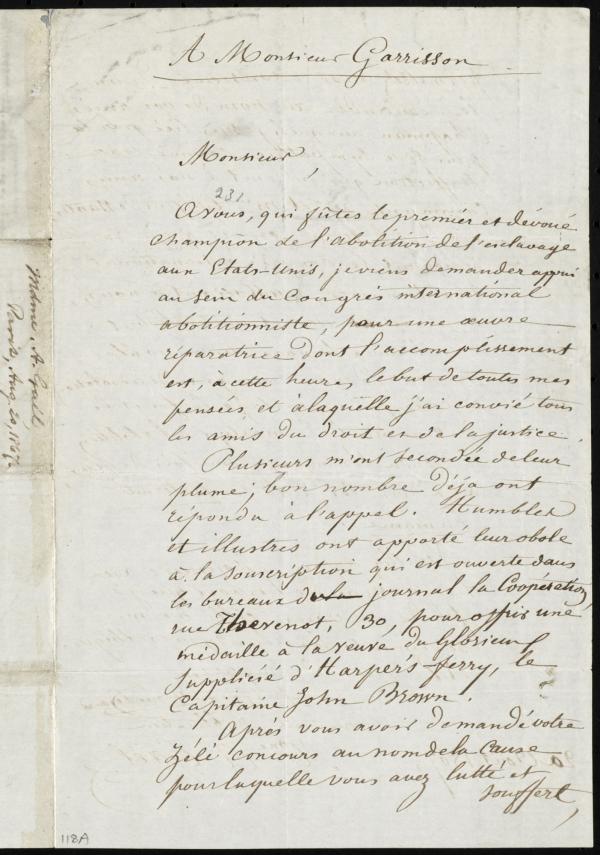 A Monsieur Garrisson
Monsieur,
231.
A vous, qui fûtes le premier et dévoué
champion de l'abolition de l'esclavage
aux Etats-Unis, je viens demander appui
au sein du Congrès international
abolitionniste, pour une œuvre
réparatrice dont l'accomplissement
est, à cette heure, le but de toutes mes
pensées, et à laquelle j'ai convié tous
les amis du droit et de la justice.
Plusieurs m'ont secondée de leur
plume; bon nombre déja ont
répondu à l'appel. Humbles
et illustres ont apporté leur obole
à la souscription qui est ouverte dans
les bureaux du journal la Coopération,
rue Thevenot, 30, pour offrir une
médaille à la veuve du glorieux
supplicié d'Harper's-ferry, le
Capitaine John Brown.
Après vous avoir demandé votre
zélé concours au nom de la cause
pour laquelle vous avez lutté et
souffert,
Mdme. A. Gaël
Paris, Aug. 20, 1867.
118A